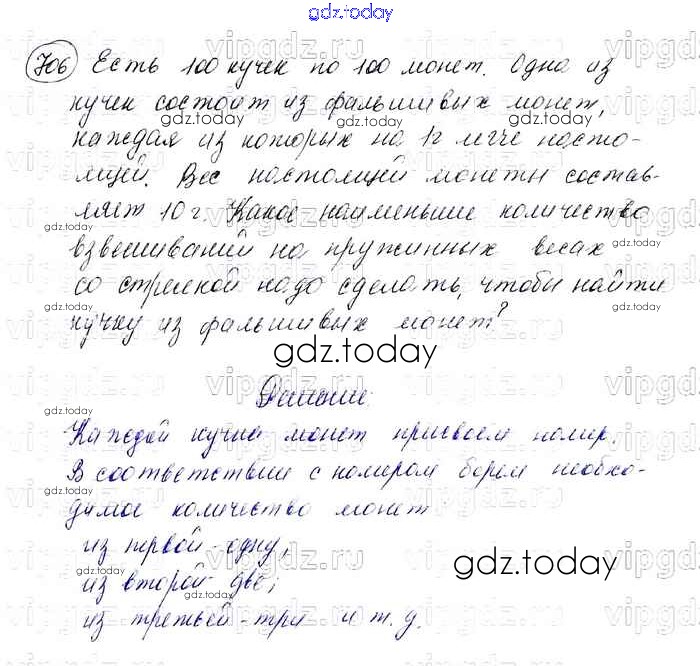 gdz.today
706 Есть 100 кучек по 100 монет. Одна из
кучек состоит из фальшивых монет,
каждая из которых на 1г легче насто-
ящей. Вес настоящей монеты состав-
ляет 10 г. Какое наименьшее количество
взвешиваний на пружинных весах
со стрелкой надо сделать, чтобы найти
кучку из фальшивых монет?
gdz.today
Решение:
Каждой кучке монет присвоем номер.
В соответствии с номером берем необхо-
димое количество монет
из первой - одну;
из второй - две;
gdz.today
из третьей - три и т. д.